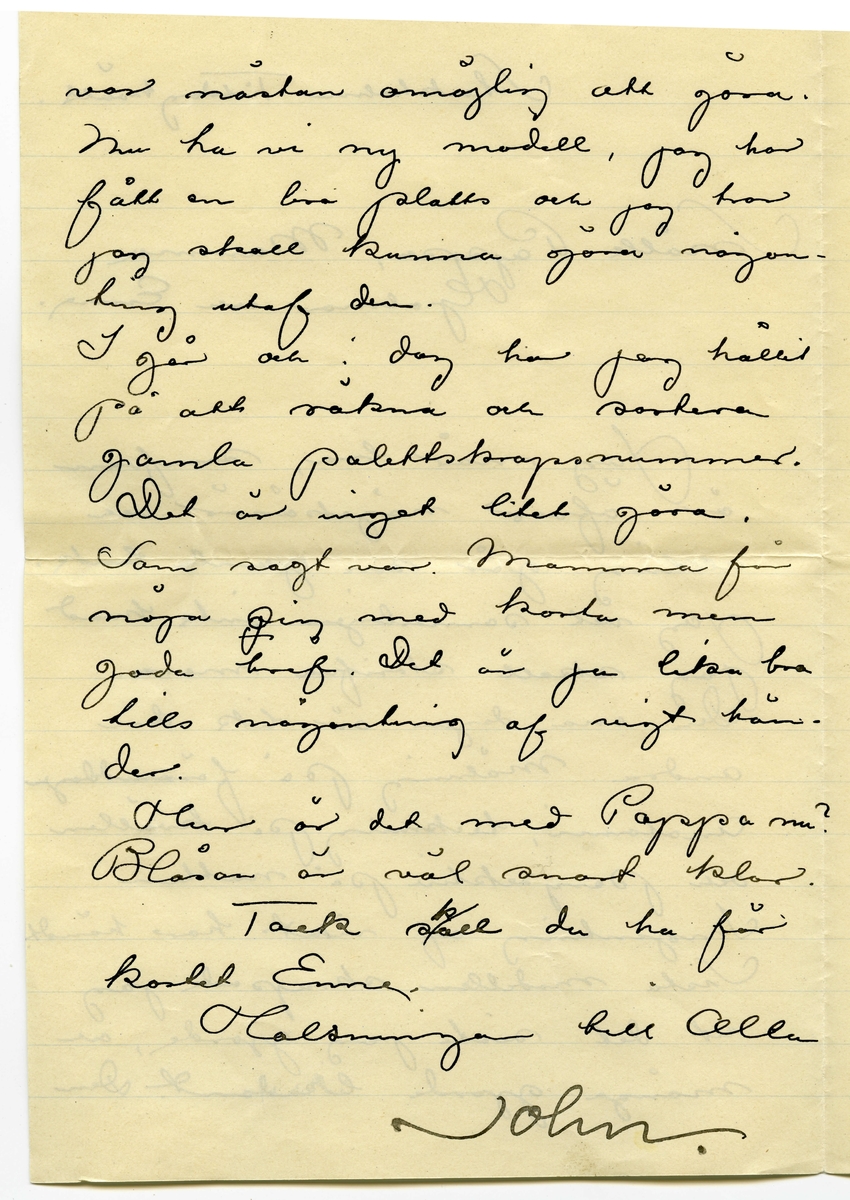 var nästan omöjling att göra.
Nu ha vi ny modell, jag har
fått en bra platts och jag tror
jag skall kunna göra någon-
ting utaf den.
I går och i dag har jag hållit
på att räkna och sortera
gamla palettskrapsnummer.
Det är inget litet göra.
Som sagt var. Mamma får
nöja sig med korta men
goda bref. Det är ju lika bra
tills någonting af vigt hän-
der.
Hur är det med Pappa nu?
Blåsan är väl snart klar.
Tack skall du ha för
kortet Enne.
Hälsningar till Alla
John.